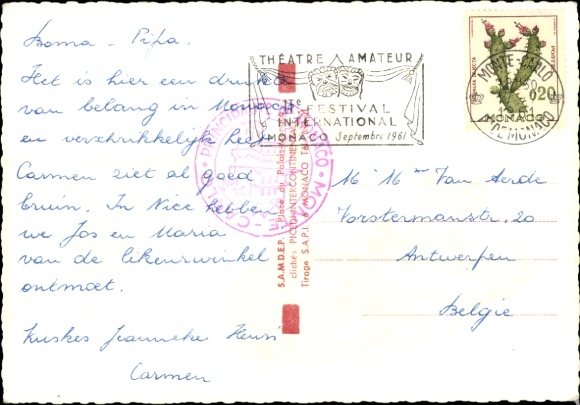 Boma - Pipa.
Het is hier een drukte
van belang in Monaco
en verschrikkelijk heet
Carmen ziet al goed
bruin. In Nice hebben
we Jos en Maria
van de likeurwinkel
ontmoet.
Kuskes Jeanneke Henri
Carmen
THÉATRE AMATEUR
FESTIVAL
INTERNATIONAL
MONACO Septembre 1961
MONTE-CARLO
Pte DE MONACO
0,20
MONACO
S.A.M.D.E.P. - Place du Palais
clichés PICTO INTERCONTINENTAL
Tirage S.A.P.I. MONACO
M Mme Van Aerde
Vorstermanstr. 20
Antwerpen
Belgie